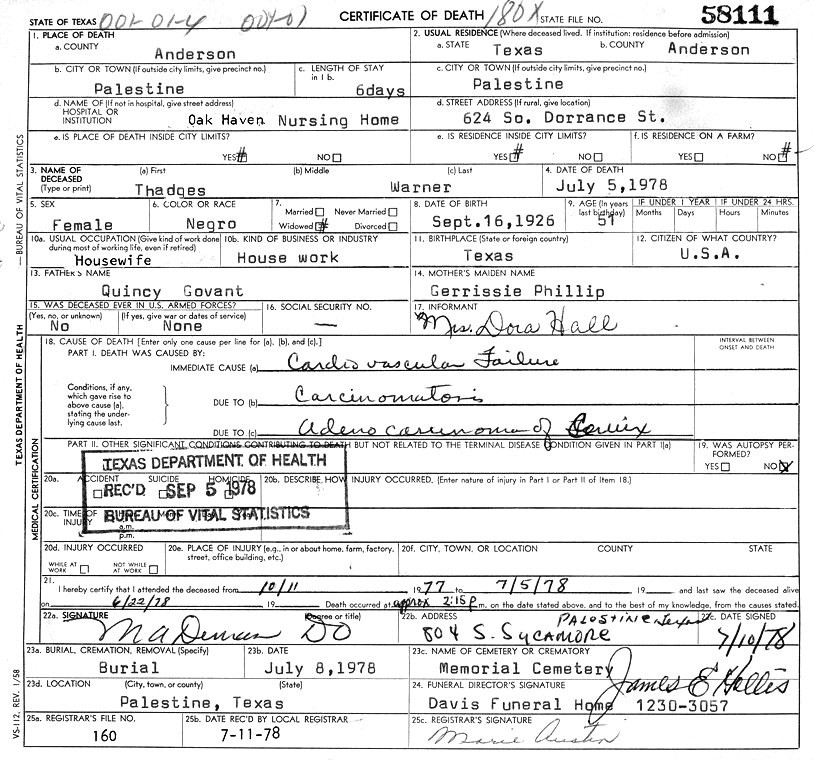 STATE OF TEXAS 001-01-4 001-01 CERTIFICATE OF DEATH 180X STATE FILE NO. 58111
1. PLACE OF DEATH
a. COUNTY
Anderson
2. USUAL RESIDENCE (Where deceased lived. If institution: residence before admission)
a. STATE Texas b. COUNTY Anderson
b. CITY OR TOWN (If outside city limits, give precinct no.)
Palestine
c. LENGTH OF STAY in 1 b.
6days
c. CITY OR TOWN (If outside city limits, give precinct no.)
Palestine
d. NAME OF (If not in hospital, give street address)
HOSPITAL OR
INSTITUTION Oak Haven Nursing Home
d. STREET ADDRESS (If rural, give location)
624 So. Dorrance St.
e. IS PLACE OF DEATH INSIDE CITY LIMITS?
YES # NO
e. IS RESIDENCE INSIDE CITY LIMITS?
YES # NO
f. IS RESIDENCE ON A FARM?
YES NO #
3. NAME OF DECEASED (Type or print)
(a) First (b) Middle (c) Last
Thadges Warner
4. DATE OF DEATH
July 5,1978
5. SEX
Female
6. COLOR OR RACE
Negro
7.
Married Never Married
Widowed # Divorced
8. DATE OF BIRTH
Sept.16,1926
9. AGE (In years last birthday)
51
IF UNDER 1 YEAR
Months Days
IF UNDER 24 HRS.
Hours Minutes
10a. USUAL OCCUPATION (Give kind of work done during most of working life, even if retired)
Housewife
10b. KIND OF BUSINESS OR INDUSTRY
House work
11. BIRTHPLACE (State or foreign country)
Texas
12. CITIZEN OF WHAT COUNTRY?
U.S.A.
13. FATHER'S NAME
Quincy Govant
14. MOTHER'S MAIDEN NAME
Gerrissie Phillip
15. WAS DECEASED EVER IN U.S. ARMED FORCES?
(Yes, no, or unknown) (If yes, give war or dates of service)
No None
16. SOCIAL SECURITY NO.
—
17. INFORMANT
Mrs. Dora Hall
18. CAUSE OF DEATH [Enter only one cause per line for (a), (b), and (c).]
INTERVAL BETWEEN ONSET AND DEATH
PART I. DEATH WAS CAUSED BY:
IMMEDIATE CAUSE (a) Cardio vascular Failure
Conditions, if any, which gave rise to above cause (a), stating the underlying cause last.
DUE TO (b) Carcinomatosis
DUE TO (c) Adeno carcinoma of Cervix
PART II. OTHER SIGNIFICANT CONDITIONS CONTRIBUTING TO DEATH BUT NOT RELATED TO THE TERMINAL DISEASE CONDITION GIVEN IN PART I(a)
19. WAS AUTOPSY PERFORMED?
YES NO X
TEXAS DEPARTMENT OF HEALTH
REC'D SEP 5 1978
BUREAU OF VITAL STATISTICS
20a. ACCIDENT SUICIDE HOMICIDE
20b. DESCRIBE HOW INJURY OCCURRED. (Enter nature of injury in Part I or Part II of Item 18.)
20c. TIME OF INJURY
a.m.
p.m.
20d. INJURY OCCURRED
WHILE AT WORK NOT WHILE AT WORK
20e. PLACE OF INJURY (e.g., in or about home, farm, factory, street, office building, etc.)
20f. CITY, TOWN, OR LOCATION COUNTY STATE
21.
I hereby certify that I attended the deceased from 10/11 1977 to 7/5/78 19 and last saw the deceased alive
on 6/22/78 19 Death occurred at approx 2:15 p.m. on the date stated above, and to the best of my knowledge, from the causes stated.
22a. SIGNATURE (Degree or title)
DO
22b. ADDRESS
804 S. Sycamore Palestine Texas
22c. DATE SIGNED
7/10/78
23a. BURIAL, CREMATION, REMOVAL (Specify)
Burial
23b. DATE
July 8,1978
23c. NAME OF CEMETERY OR CREMATORY
Memorial Cemetery
23d. LOCATION (City, town, or county) (State)
Palestine, Texas
24. FUNERAL DIRECTOR'S SIGNATURE
James E Hollis
Davis Funeral Home 1230-3057
25a. REGISTRAR'S FILE NO.
160
25b. DATE REC'D BY LOCAL REGISTRAR
7-11-78
25c. REGISTRAR'S SIGNATURE
Marie Austin
TEXAS DEPARTMENT OF HEALTH — BUREAU OF VITAL STATISTICS
MEDICAL CERTIFICATION
VS-112, REV. 1/58